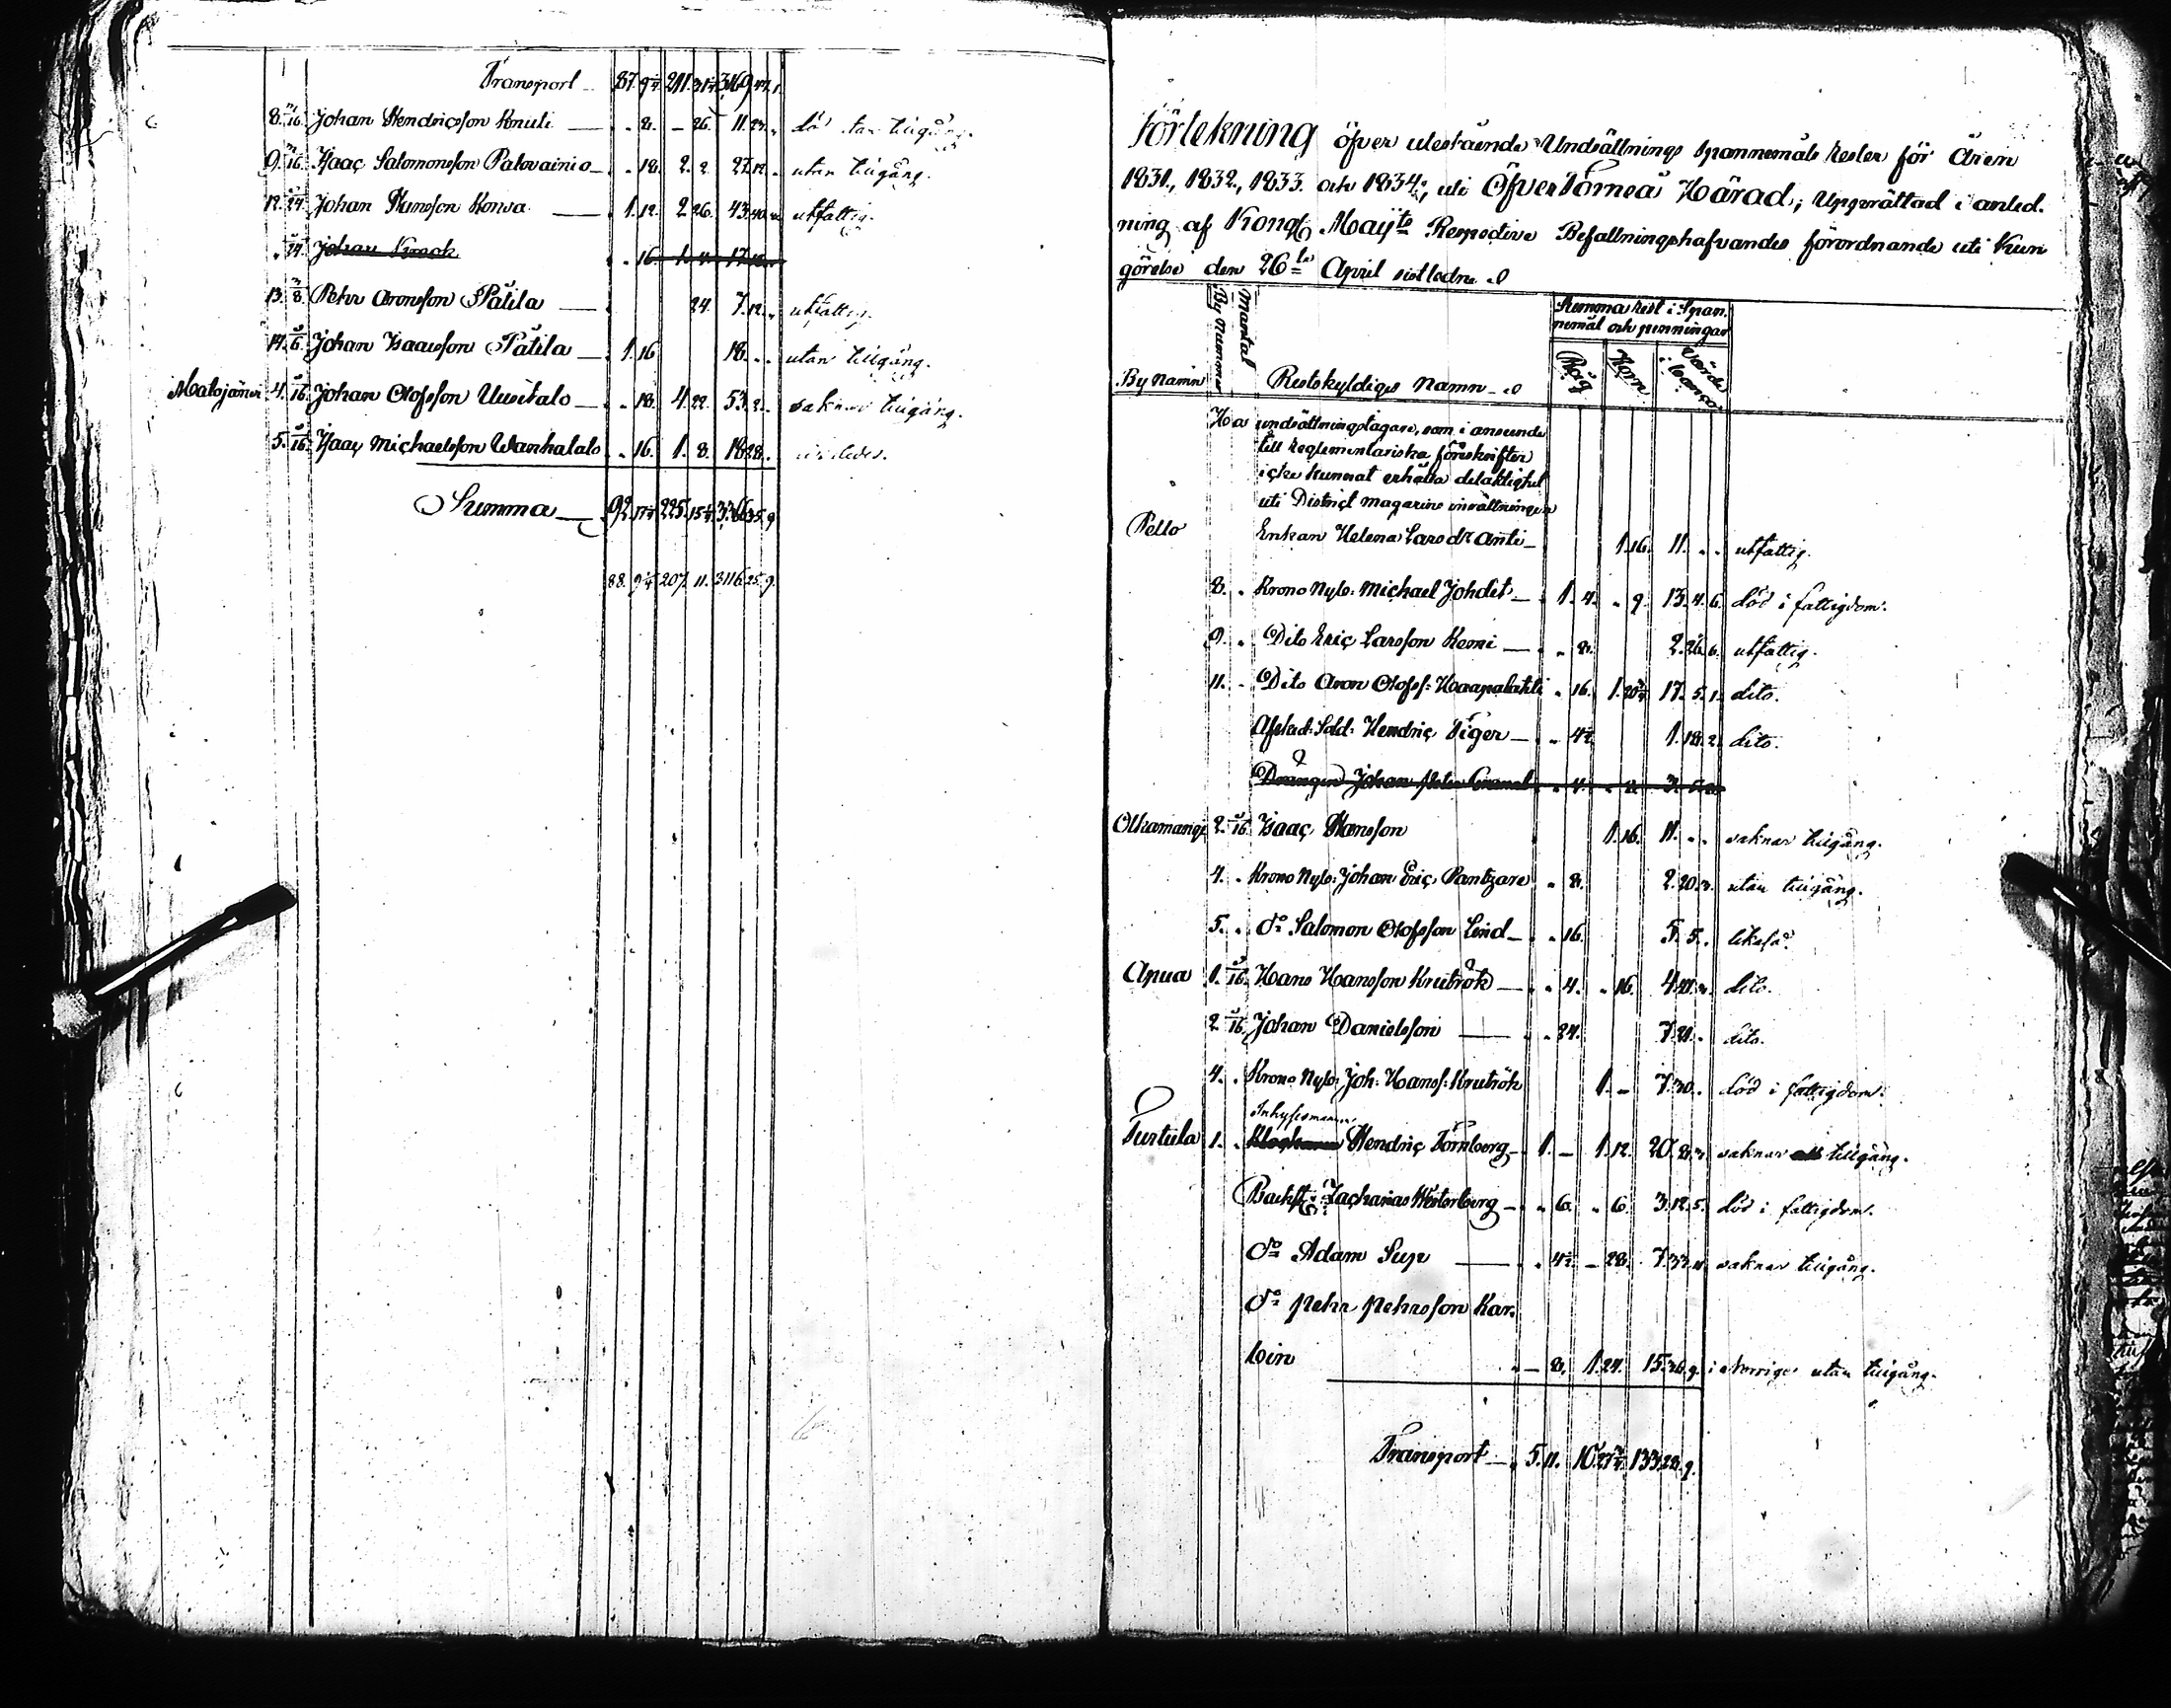 Transport 87. 9¼ 211. 31¼ 3169. 47. 1.
8. Johan Hendricsson Knuti — 8. — 26. 11. 23. död utan tillgång.
9. Isaac Salomonsson Palovainio — 18. 2. 2. 27. 12. utan tillgång.
12. Johan Hansson Konsa — 1. 12. 2. 26. 43. 40. utfattig.
Johan Krook 16.
13. Pehr Aronsson Pätilä — 24. 7. 12. utfattig.
14. Johan Isaacsson Pätilä — 1. 16 18. utan tillgång.
Matojärvi 4. Johan Olofsson Uusitalo — 18. 4. 22. 53. 2. saknar tillgång.
5. Isaac Michaelsson Wanhatalo 16. 1. 8. 18. 28.
Summa — 92. 225. 3366. 35. 9
88. 9¼ 207. 11. 3116. 25. 9.
Förtekning öfver utestående Undsättnings Spannemåls Rester för Åren
1831., 1832., 1833. och 1834., uti ÖfverTorneå Härad; Upprättad i anled.
ning af Kongl. Maij:ts Respective Befallningshafvandes förordnande uti Kun
görelse den 26te April sistledne
By Namn
By Nummer
Mantal
Restskyldiges Namn
Summa Rest i Span.
nemål och penningar
Råg
Korn
Värde i banco
undsättningstagare, som i anseende
till Reglementariska föreskrifter
icke kunnat erhålla delaktighet
uti District magazins inrättningen
Pello Enkan Helena Larsdr Anti — 1. 16. 11. utfattig.
8. Krono Nyb: Michael Johdet — 1. 4. 9. 13. 4. 6. död i fattigdom.
9. Dito Eric Larsson Kemi — 8. 2. 26. 6. utfattig.
11. Dito Aron Olofss: Haapalahti 16. 1. 20¾ 17. 5. 1. dito.
Afsked: Sold: Hendric Tiger — 4½ 1. 18. 2. dito.
Drängen Johan Peter
Olkamangi 2. Isaac Hansson 1. 16. 11. saknar tillgång.
4. Krono Nyb: Johan Eric. Pantzare 8. 2. 20. 3. utan tillgång.
5. do Salomon Olofsson Lind — 16. 5. 5. likaså.
Apua 1. Hans Hansson Krutrök — 4. 16. 4. dito.
2. Johan Danielsson — 24. 7. 21. dito.
4. Krono Nyb: Joh: Hanss: Krutrök 1. — 7. 30. död i fattigdom.
Inhysesmannen
Turtula 1. Hendric Törnberg — 1. — 1. 12. 20. 8. saknar tillgång.
Zacharias Westerberg — 6. 6. 3. 12. 5. död i fattigdom.
do Adam Sup — 4½ — 28. 7. 33. saknar tillgång.
do Pehr Pehrsson Kar.
— 8. 1. 24. 15. 26. 9. i Norrige utan tillgång.
Transport — 5. 11. 10. 27¾ 133. 28. 9.